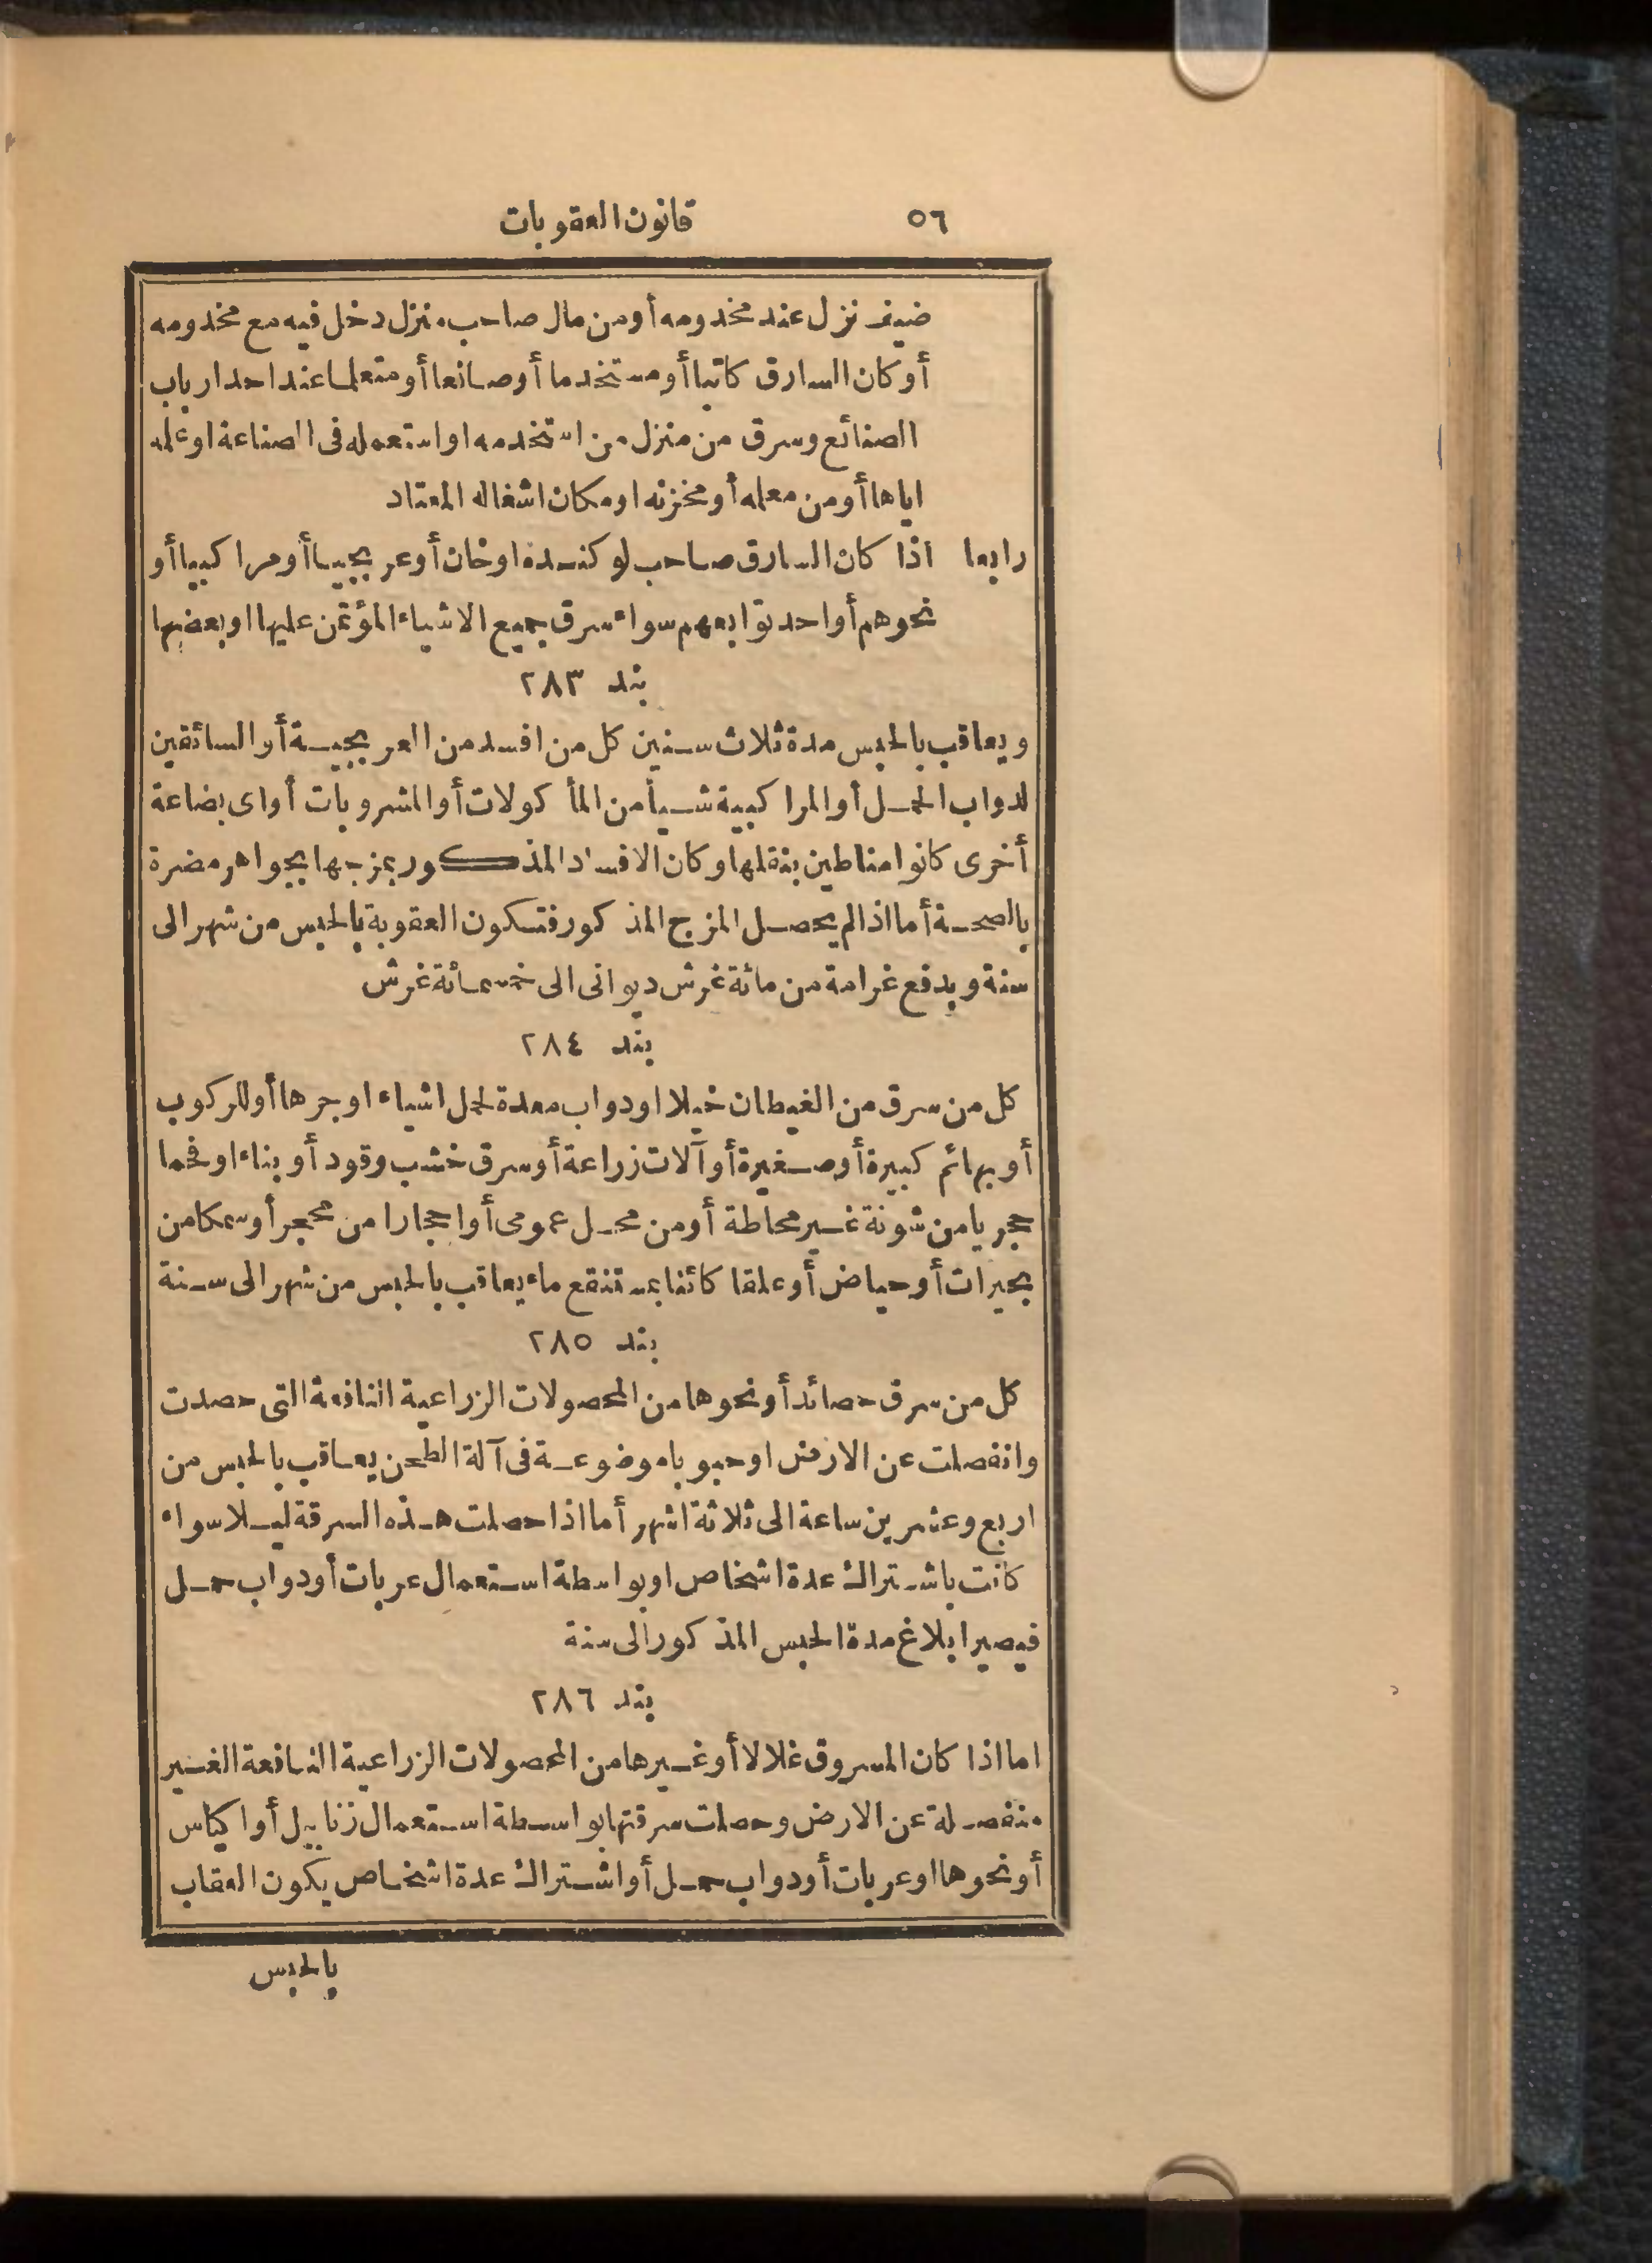 ٥٦ قانون العقوبات
ضيف نزل عند مخدومه أو من مال صاحب منزل دخل فيه مع مخدومه
أو كان السارق كاتبا أو مستخدما أو صانعا أو متعلما عند احد ارباب
الصنائع وسرق من منزل من استخدمه او استعمله فى الصناعة او علمه
اياها أو من معمله أو مخزنه او مكان اشغاله المعتاد
رابعا اذا كان السارق صاحب لوكنده او خان أو عربجيا أو مراكبيا أو
نحوهم أو احد توابعهم سواء سرق جميع الاشياء المؤتمن عليها او بعضها
بند ٢٨٣
ويعاقب بالحبس مدة ثلاث سنين كل من افسد من العربجية أو السائقين
لدواب الحمل أو المراكبية شيأ من المأكولات أو المشروبات أو اى بضاعة
أخرى كانوا مناطين بنقلها وكان الافساد المذكور بمزجها بجواهر مضرة
بالصحة أما اذا لم يحصل المزج المذكور فتكون العقوبة بالحبس من شهر الى
سنة وبدفع غرامة من مائة غرش ديوانى الى خمسمائة غرش
بند ٢٨٤
كل من سرق من الغيطان خيلا او دواب معدة لحمل اشياء او جرها أو للركوب
أو بهائم كبيرة أو صغيرة أو آلات زراعة أو سرق خشب وقود أو بناء او فحما
حجريا من شونة غير محاطة أو من محل عمومى أو احجارا من محجر أو سمكا من
بحيرات أو حياض أو علقا كائنا بمستنقع ماء يعاقب بالحبس من شهر الى سنة
بند ٢٨٥
كل من سرق حصائد أو نحوها من المحصولات الزراعية النافعة التى حصدت
وانفصلت عن الارض او حبوبا موضوعة فى آلة الطحن يعاقب بالحبس من
اربع وعشرين ساعة الى ثلاثة اشهر أما اذا حصلت هذه السرقة ليلا سواء
كانت باشتراك عدة اشخاص او بواسطة استعمال عربات أو دواب حمل
فيصير ابلاغ مدة الحبس المذكور الى سنة
بند ٢٨٦
اما اذا كان المسروق غلالا أو غيرها من المحصولات الزراعية النافعة الغير
منفصلة عن الارض وحصلت سرقتها بواسطة استعمال زنابيل أو اكياس
أو نحوها او عربات أو دواب حمل أو اشتراك عدة اشخاص يكون العقاب
بالحبس